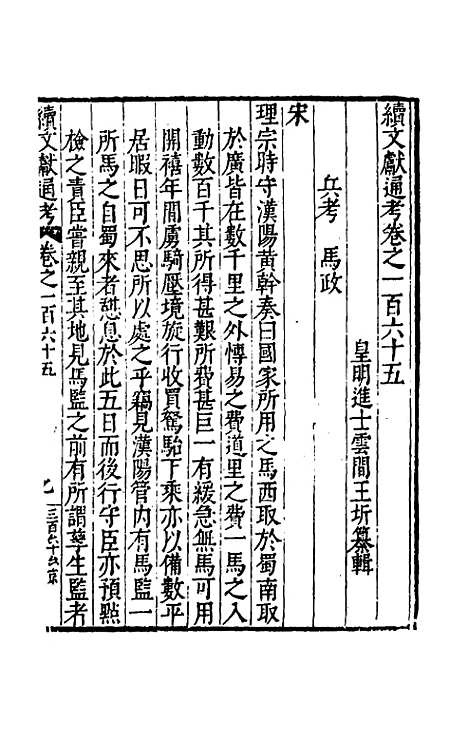 續文獻通考卷之一百六十五
皇明進士雲間王圻纂輯
兵考　馬政
宋
理宗時守漢陽黃幹奏曰國家所用之馬西取於蜀南取
於廣皆在數千里之外博易之費道里之費一馬之入
動數百千其所得甚艱所費甚巨一有緩急無馬可用
開禧年間虜騎壓境旋行收買駑駘下乘亦以備數平
居暇日可不思所以處之乎竊見漢陽管内有馬監一
所馬之自蜀來者憩息於此五日而後行守臣亦預點
檢之責臣嘗親至其地見馬監之前有所謂孳生監考
續文獻通考　卷之一百六十五